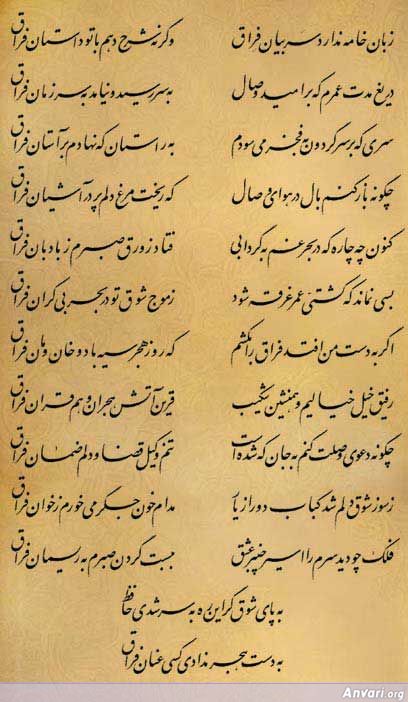 زبان خامه ندارد سر بیان فراق وگرنه شرح دهم با تو داستان فراق
دریغ مدت عمرم که بر امید وصال به سر رسید و نیامد به سر زمان فراق
سری که بر سر گردون به فخر می سودم به راستان که نهادم بر آستان فراق
چگونه باز کنم بال در هوای وصال که ریخت مرغ دلم پر در آشیان فراق
کنون چه چاره که در بحر غم به گردابی فتاد زورق صبرم ز بادبان فراق
بسی نماند که کشتی عمر غرقه شود ز موج شوق تو در بحر بی کران فراق
اگر به دست من افتد فراق را بکشم که روز هجر سیه باد و خان و مان فراق
رفیق خیل خیالیم و همنشین شکیب قرین آتش هجران و هم قران فراق
چگونه دعوی وصلت کنم به جان که شده است تنم وکیل قضا و دلم ضمان فراق
ز سوز شوق دلم شد کباب دور از یار مدام خون جگر می خورم ز خوان فراق
فلک چو دید سرم را اسیر چنبر عشق ببست گردن صبرم به ریسمان فراق
به پای شوق گر این ره به سر شدی حافظ
به دست هجر ندادی کسی عنان فراق
Anvari.org